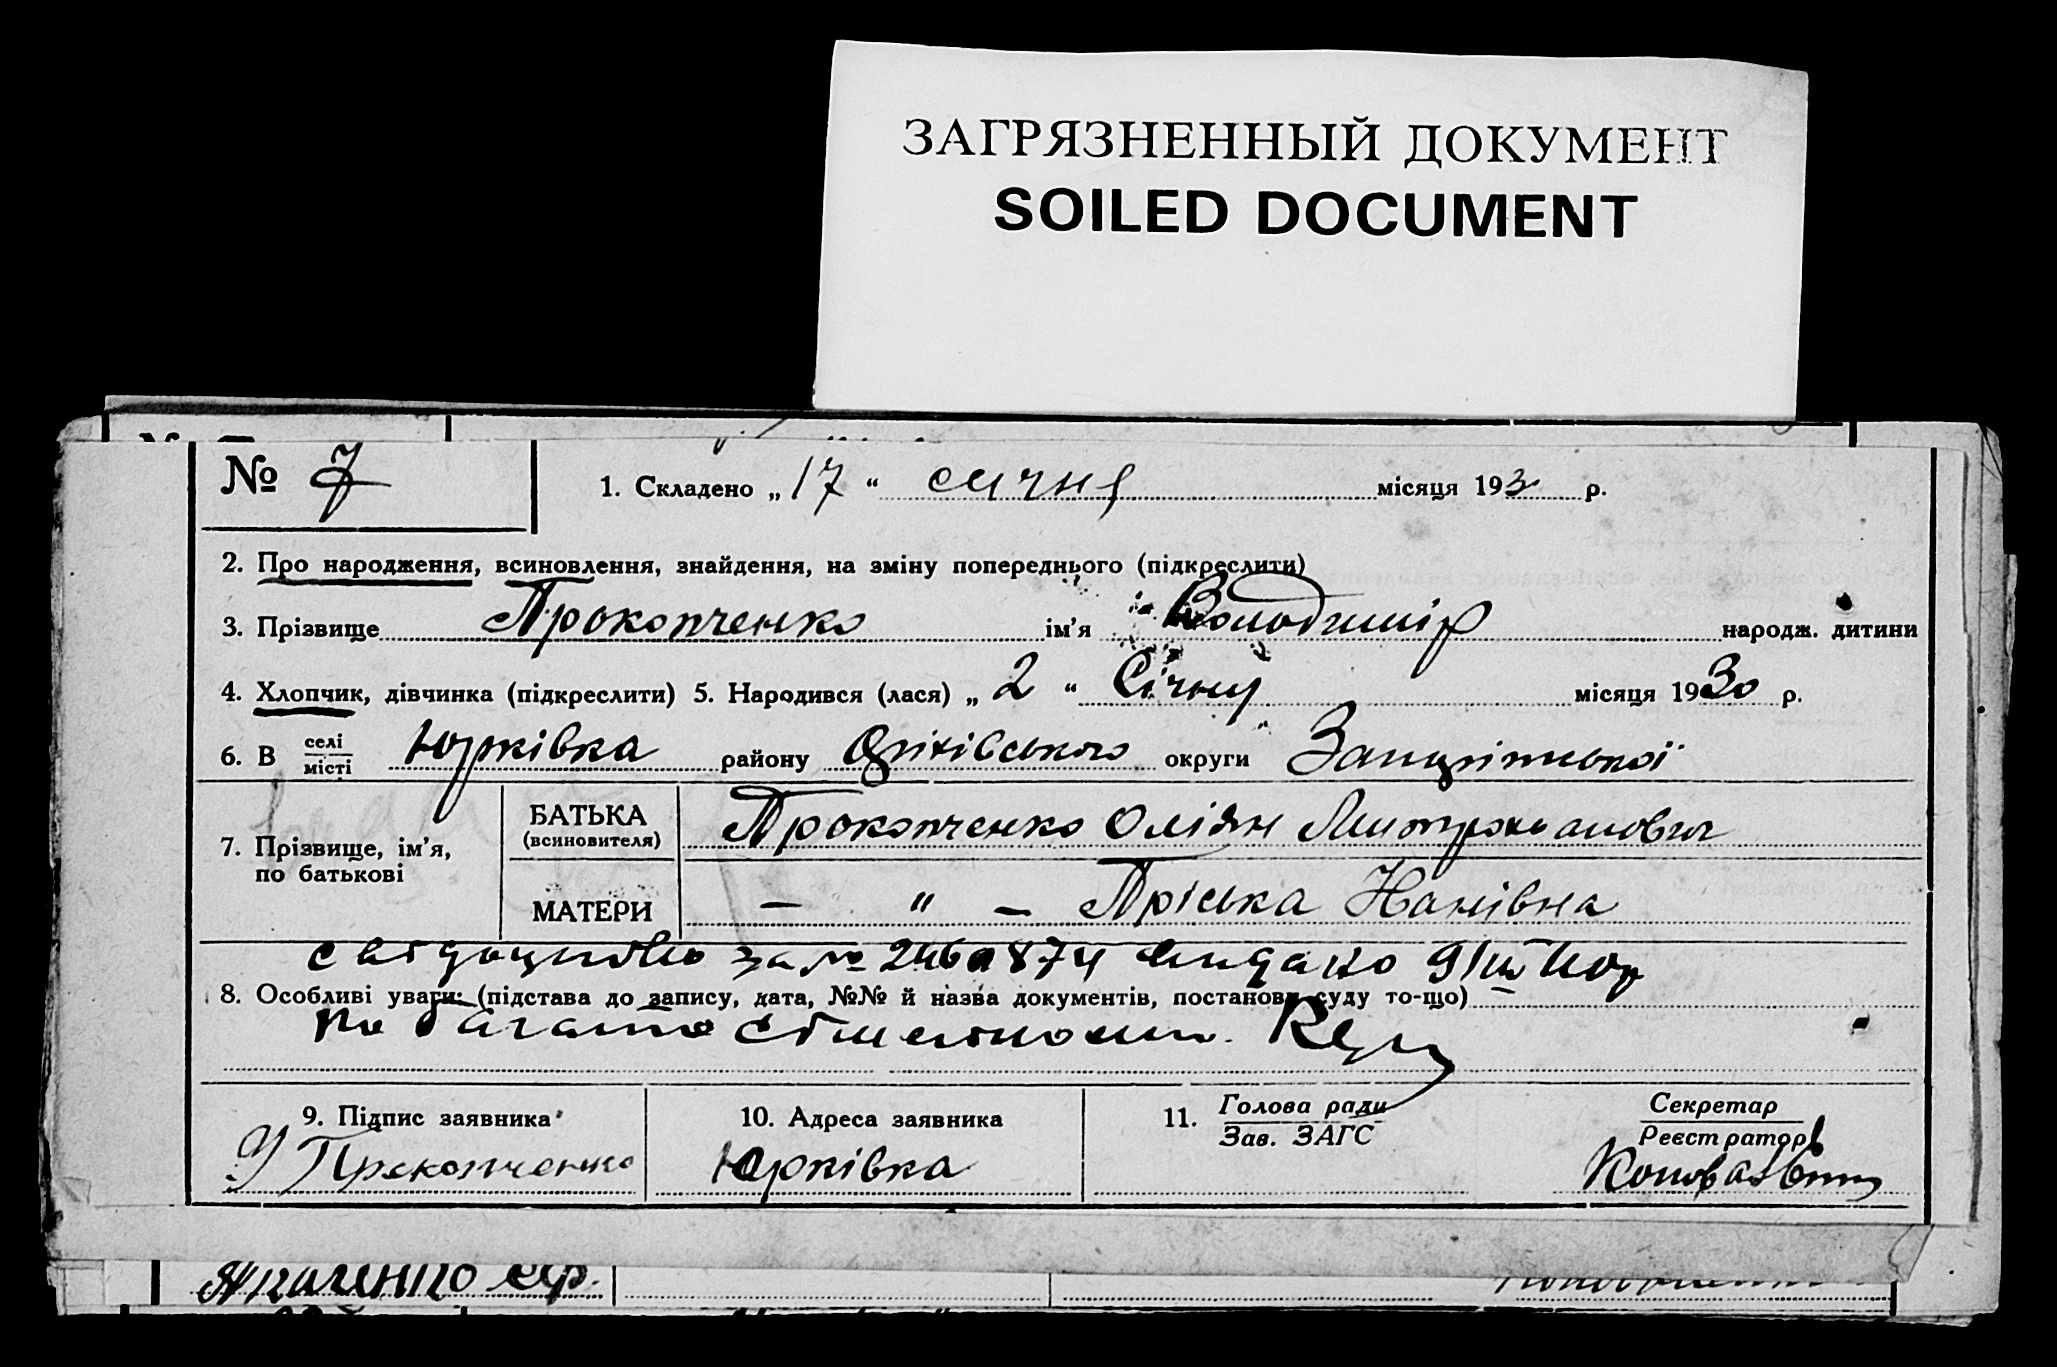 ЗАГРЯЗНЕННЫЙ ДОКУМЕНТ
SOILED DOCUMENT
№ 7
1. Складено „ 17 “ січня місяця 193 р.
2. Про народження, всиновлення, знайдення, на зміну попереднього (підкреслити)
3. Прізвище Прокопченко ім’я Володимір народж. дитини
4. Хлопчик, дівчинка (підкреслити) 5. Народився (лася) „ 2 “ Січня місяця 1930 р.
6. В селі місті Юрківка району Оріхівського округи Запорізької
7. Прізвище, ім’я, по батькові
БАТЬКА (всиновителя) Прокопченко Оліян Митрофанович
МАТЕРИ — " — Пріська Нанівна
за № видано
8. Особливі уваги: (підстава до запису, дата, №№ й назва документів, постанова суду то-що)
по багато сімейности.
9. Підпис заявника 10. Адреса заявника 11. Голова ради Зав. ЗАГС Секретар Реєстратор
Прокопченко Юрківка